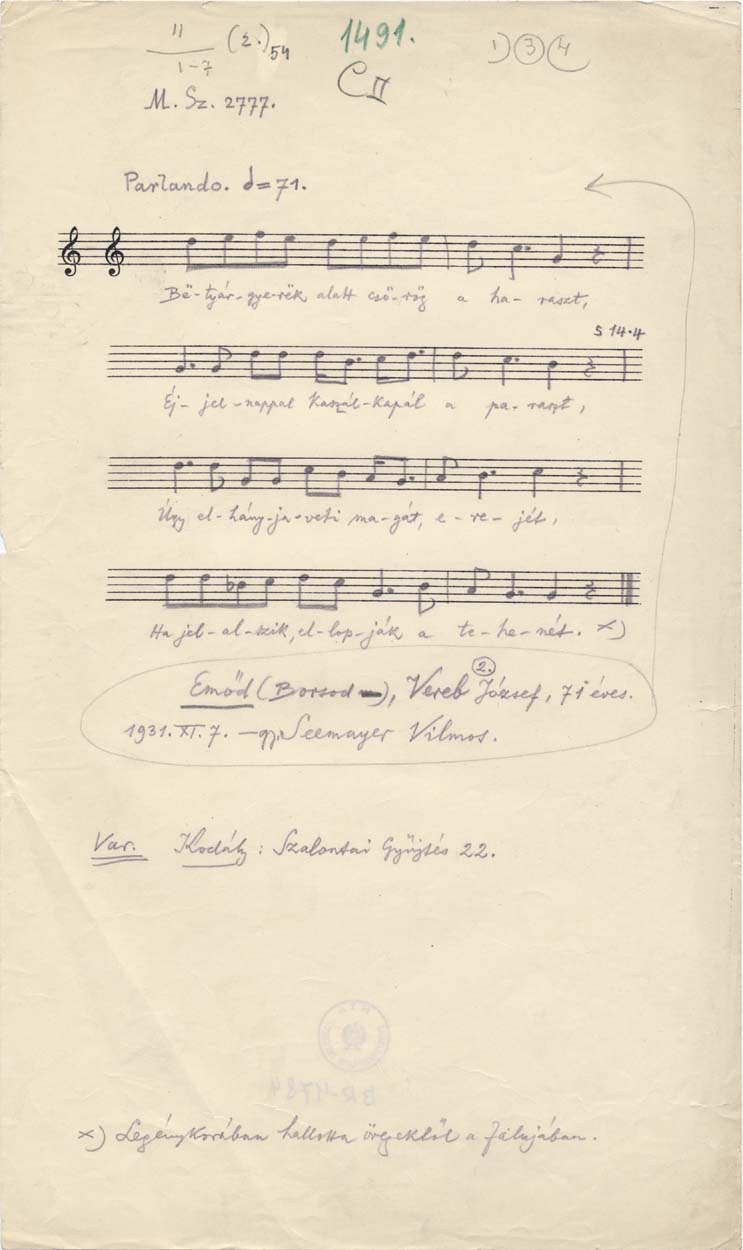 II (2.)54 1491. 1) 3 4
1-7
C II
M. Sz. 2777.
Parlando. = 71.
Bë-tyár-gye-rëk alatt csö-rög a ha-raszt,
5 14.4
Éj-jel-nappal kaszál-kapál a pa-raszt,
Úgy el-hány-ja-veti ma-gát, e-re-jét,
Ha jel-al-szik, el-lop-ják a te-he-nét. x)
2.
Emőd (Borsod), Vereb József, 71 éves.
1931. XI. 7. – gy. Seemayer Vilmos.
Var. Kodály: Szalontai Gyűjtés 22.
BR-4784
x) Legénykorában hallotta öregektől a falujában.